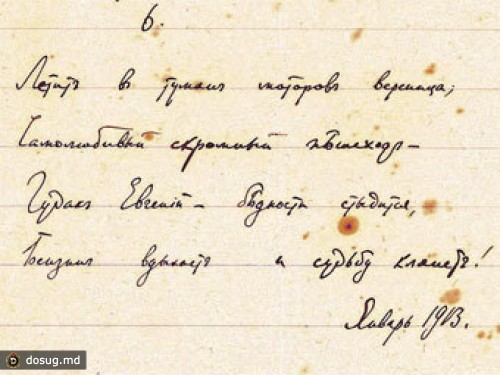 6.
Летитъ въ туманъ моторовъ вереница;
Самолюбивый скромный пѣшеходъ —
Чудакъ Евгеній — бѣдности стыдится,
Бензинъ вдыхаетъ и судьбу клянетъ!
Январь 1913.
dosug.md